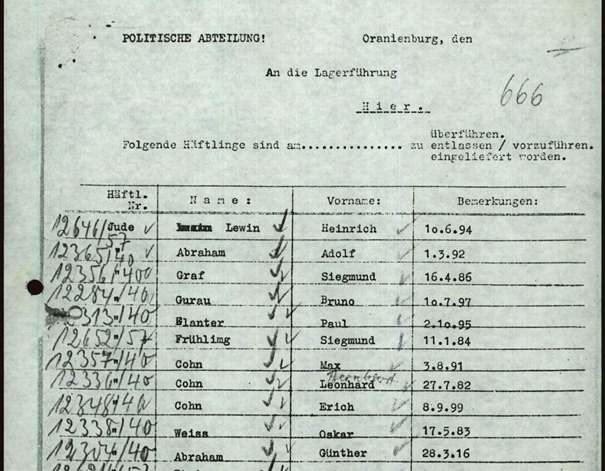 POLITISCHE ABTEILUNG! Oranienburg, den
An die Lagerführung
666
Hier.
überführen.
Folgende Häftlinge sind am.............. zu entlassen / vorzuführen.
eingeliefert worden.
Häftl. Nr. Name: Vorname: Bemerkungen:
12646/57 Jude Lewin Heinrich 10.6.94
12365/40 Abraham Adolf 1.3.92
12356/40 Graf Siegmund 16.4.86
12284/40 Gurau Bruno 10.7.97
313/40 Blanter Paul 2.10.95
12652/57 Frühlimg Siegmund 11.1.84
12357/40 Cohn Max 3.8.91
12336/40 Cohn Leonhard 27.7.82
12348/40 Cohn Erich 8.9.99
12338/40 Weiss Oskar 17.5.83
12304/40 Abraham Günther 28.3.16